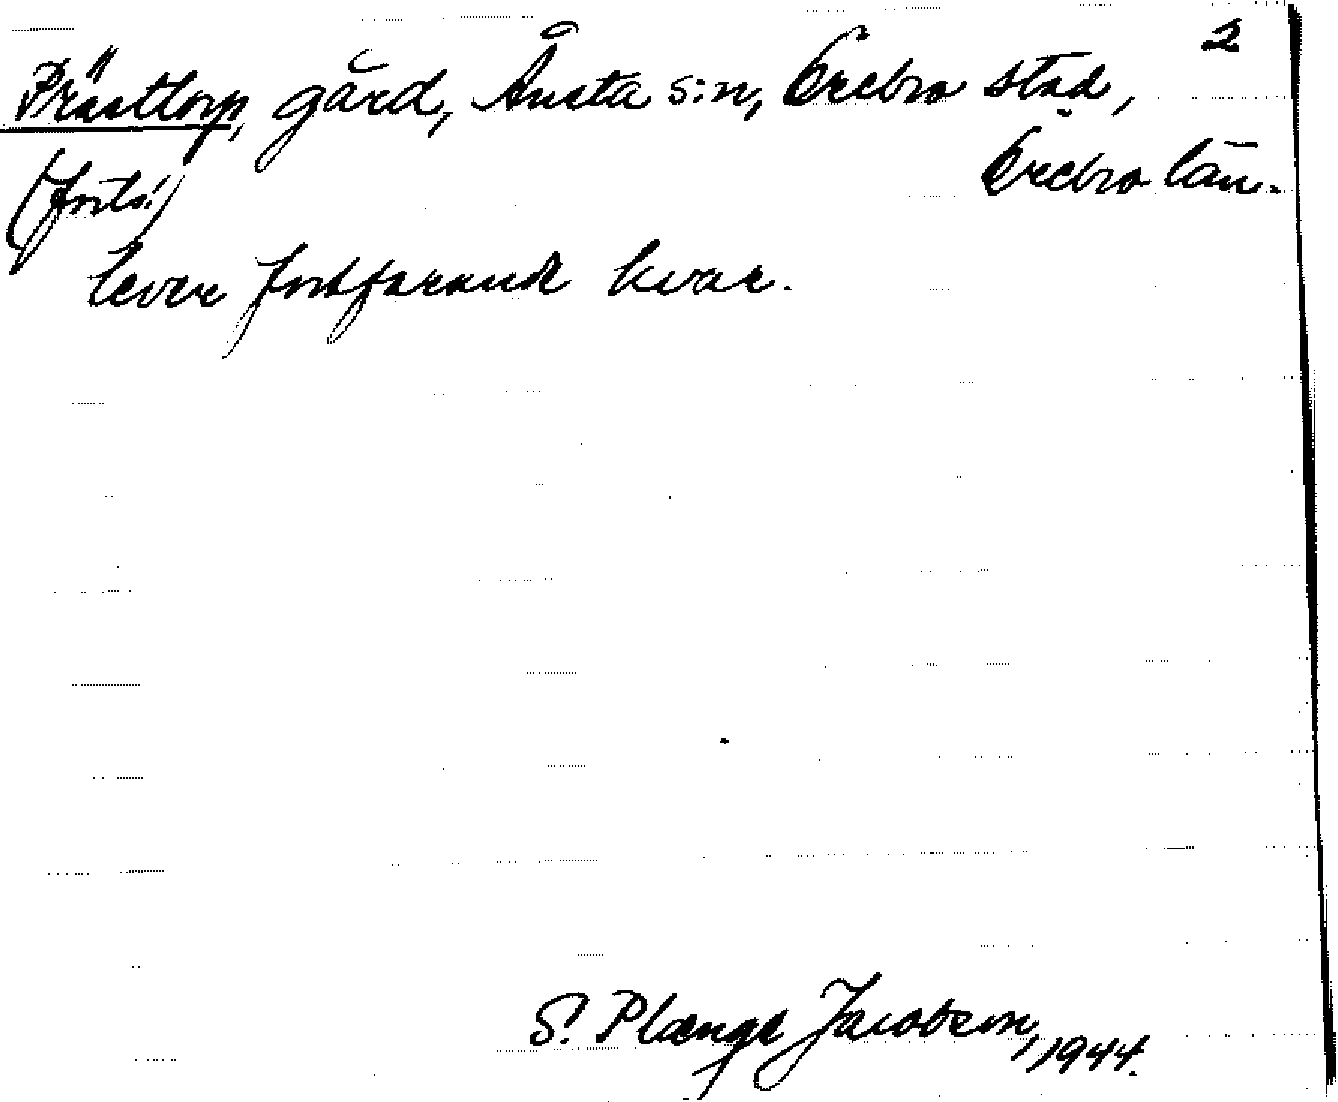 2
Prästtorp, gård, Ånsta s:n, Örebro stad,
Örebro län.
(forts.)
lever fortfarande kvar.
S. Plænge Jacobson, 1944.